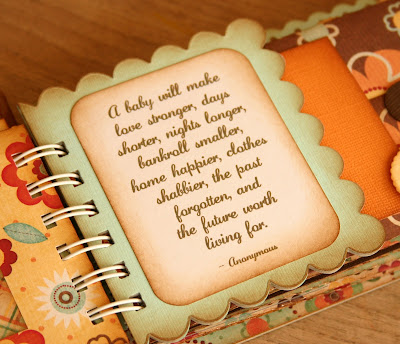 A baby will make
love stronger, days
shorter, nights longer,
bankroll smaller,
home happier, clothes
shabbier, the past
forgotten, and
the future worth
living for.
- Anonymous